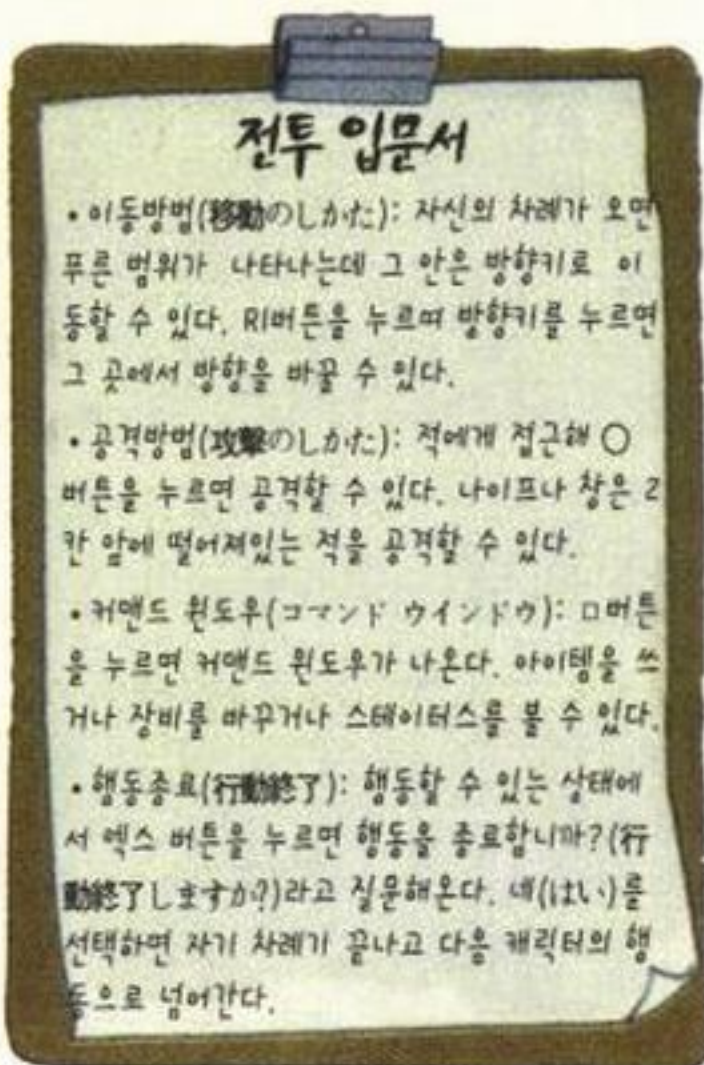 전투 입문서
• 이동방법(移動のしかた): 자신의 차례가 오면
푸른 범위가 나타나는데 그 안은 방향키로 이
동할 수 있다. R1버튼을 누르며 방향키를 누르면
그 곳에서 방향을 바꿀 수 있다.
• 공격방법(攻撃のしかた): 적에게 접근해 ○
버튼을 누르면 공격할 수 있다. 나이프나 창은 2
칸 앞에 떨어져있는 적을 공격할 수 있다.
• 커맨드 윈도우(コマンド ウインドウ): □버튼
을 누르면 커맨드 윈도우가 나온다. 아이템을 쓰
거나 장비를 바꾸거나 스테이터스를 볼 수 있다.
• 행동종료(行動終了): 행동할 수 있는 상태에
서 엑스 버튼을 누르면 행동을 종료합니까?(行
動終了しますか?)라고 질문해온다. 네(はい)를
선택하면 자기 차례기 끝나고 다음 캐릭터의 행
동으로 넘어간다.